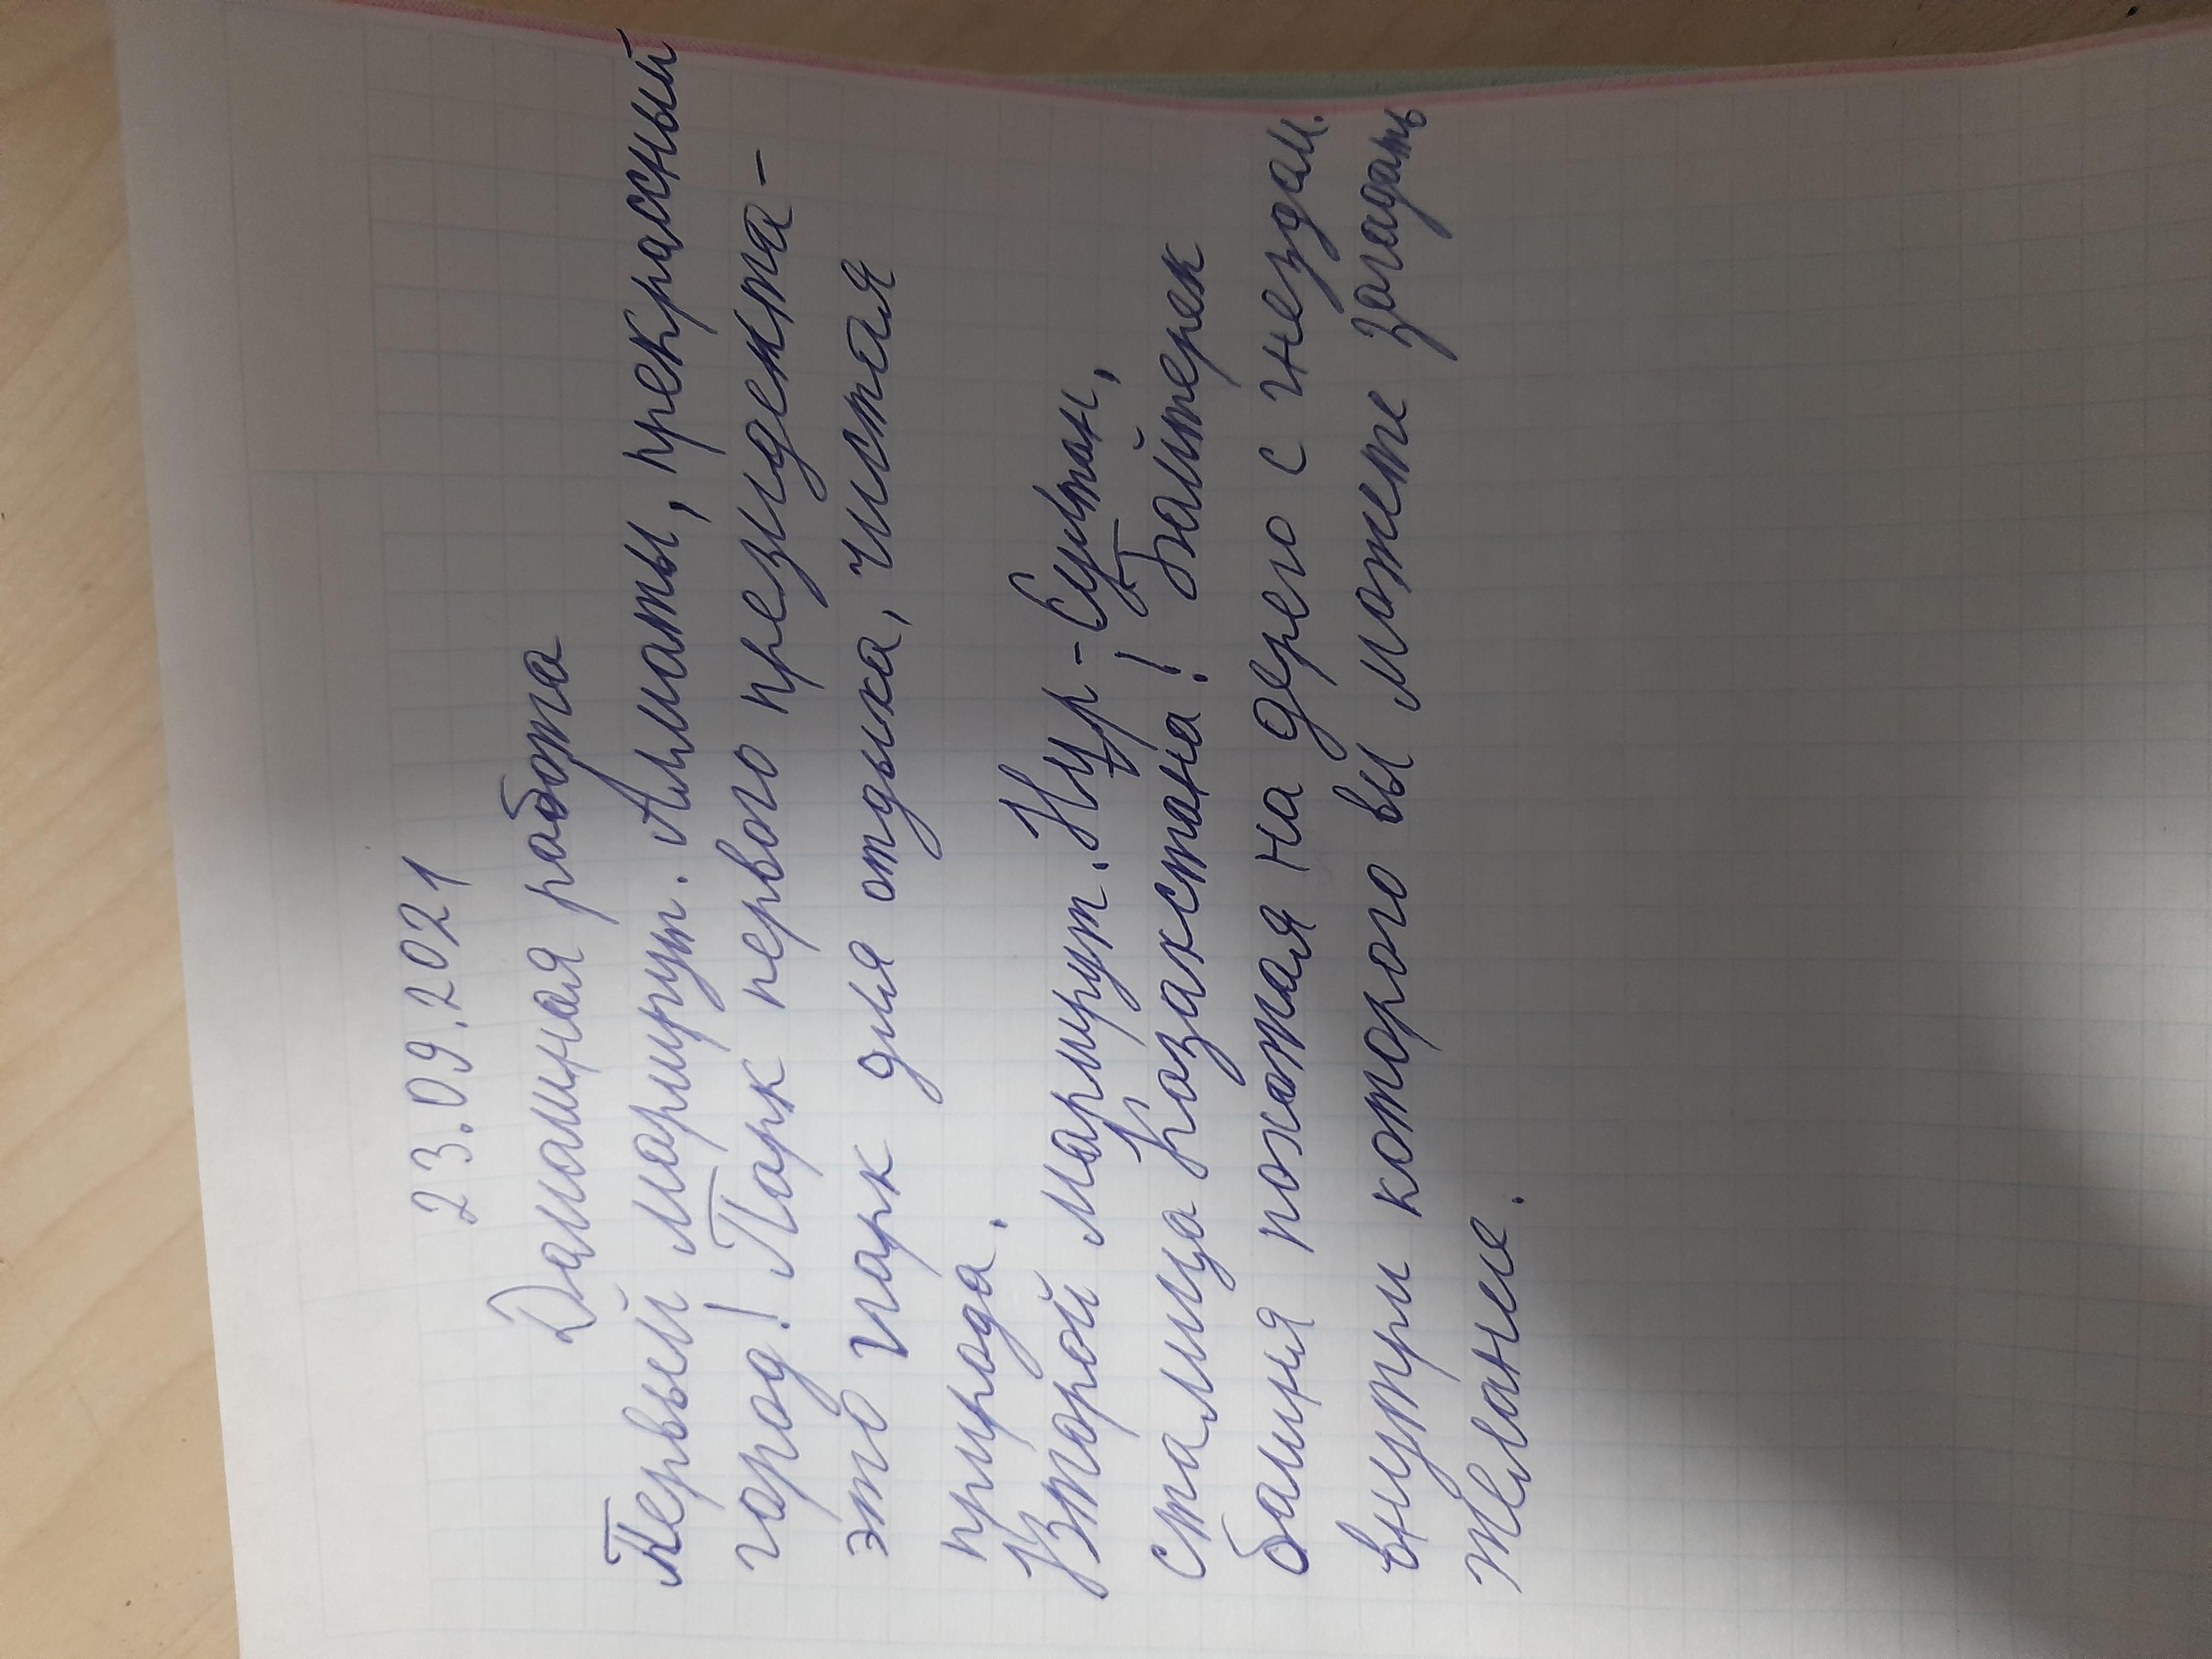 23.09.2021
Домашная работа
Первый маршрут. Алматы, прекрасный
город! Парк первого президента -
это парк для отдыха, чистая
природа.
Второй маршрут. Нур-Султан,
сталица Казакстана! Байтерек
башня похожая на дерево с гнездом.
внутри которого вы можете загадать
желание.